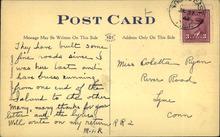 POST CARD
Message May Be Written On This Side
Address Only On This Side
They have built some
fine roads since I
was here last and
have buses running
from one end of the
Island to the other
Many many thanks for your
letter and the
Will write on my return
M.H.R
Miss Coletta Ryan
River Road
Lyme
Conn
R R 2